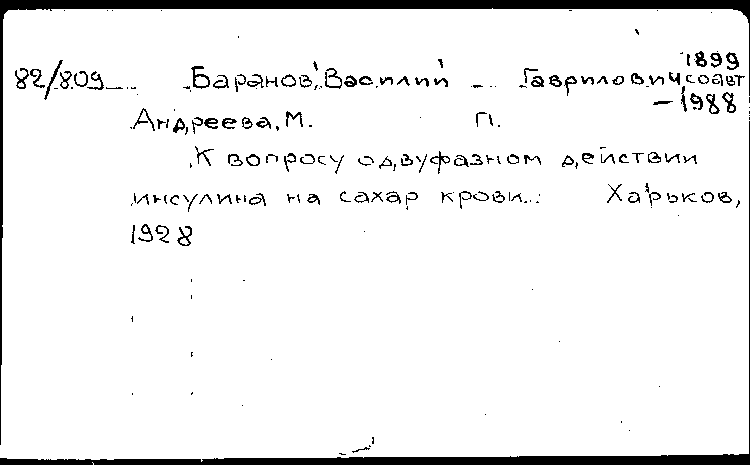 1899
82/809 Баранов, Василий Гаврилович, соавт
– 1988
Андреева, М. П.
К вопросу о двуфазном действии
инсулина на сахар крови... Харьков,
1928